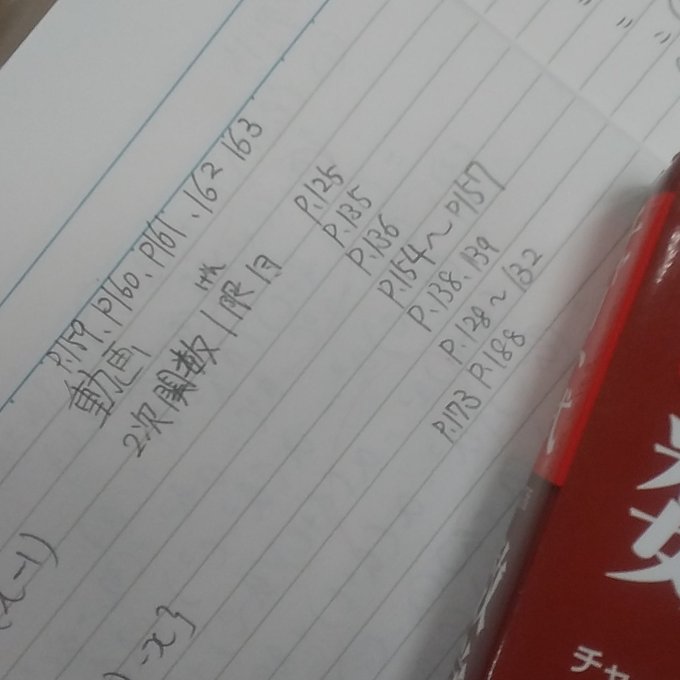 P.159、P160、P161、162 163
動画
2次関数 1限目
P.125
P.135
P.136
P.154~P157
P.138、139
P.128~132
P.173 P.188
(x-1)
-x}
チャ